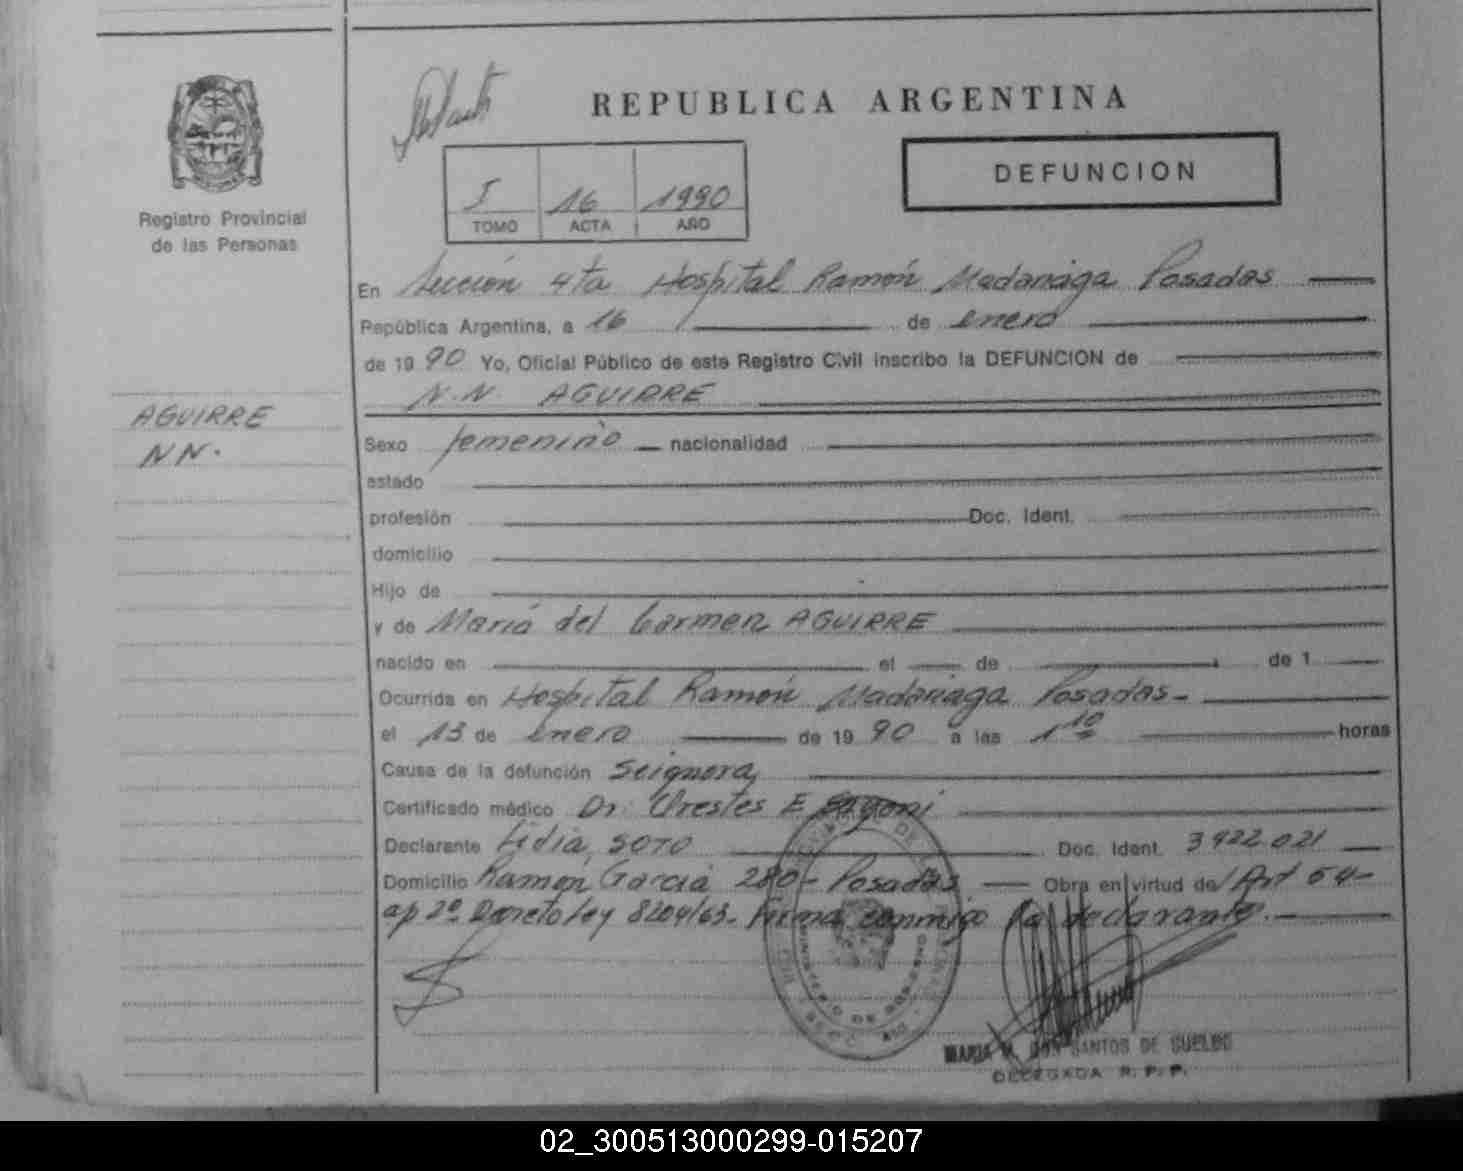 REPUBLICA ARGENTINA
DEFUNCION
I 16 1990
TOMO ACTA AÑO
Registro Provincial
de las Personas
En Sección 4ta Hospital Ramón Madariaga Posadas
República Argentina, a 16 de enero
de 1990 Yo, Oficial Público de este Registro Civil inscribo la DEFUNCION de
N.N. AGUIRRE
AGUIRRE
NN.
Sexo femenino nacionalidad
estado
profesión Doc. Ident.
domicilio
Hijo de
y de María del Carmen AGUIRRE
nacido en el de de 1
Ocurrida en Hospital Ramón Madariaga Posadas-
el 13 de enero de 1990 a las 1 10 horas
Causa de la defunción
Certificado médico Dr. Orestes E
Declarante Lidia SOTO Doc. Ident. 3922.021
Domicilio Ramón García 280- Posadas Obra en virtud de Art 54-
ap 2º Decreto ley 8204/63- Firma conmigo la declarante.
MARIA M. DOS SANTOS DE
DELEGADA R. P. P.
02_300513000299-015207